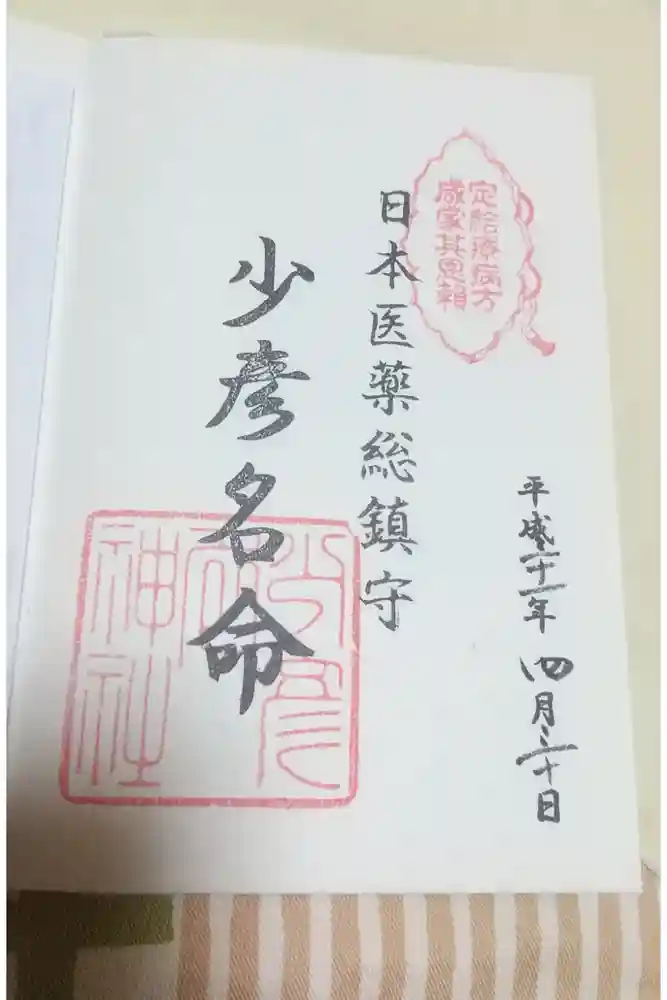 定給療病方
咸蒙其恩頼
平成三十一年 四月三十日
日本医薬総鎮守
少彦名命
少彦
名
神社